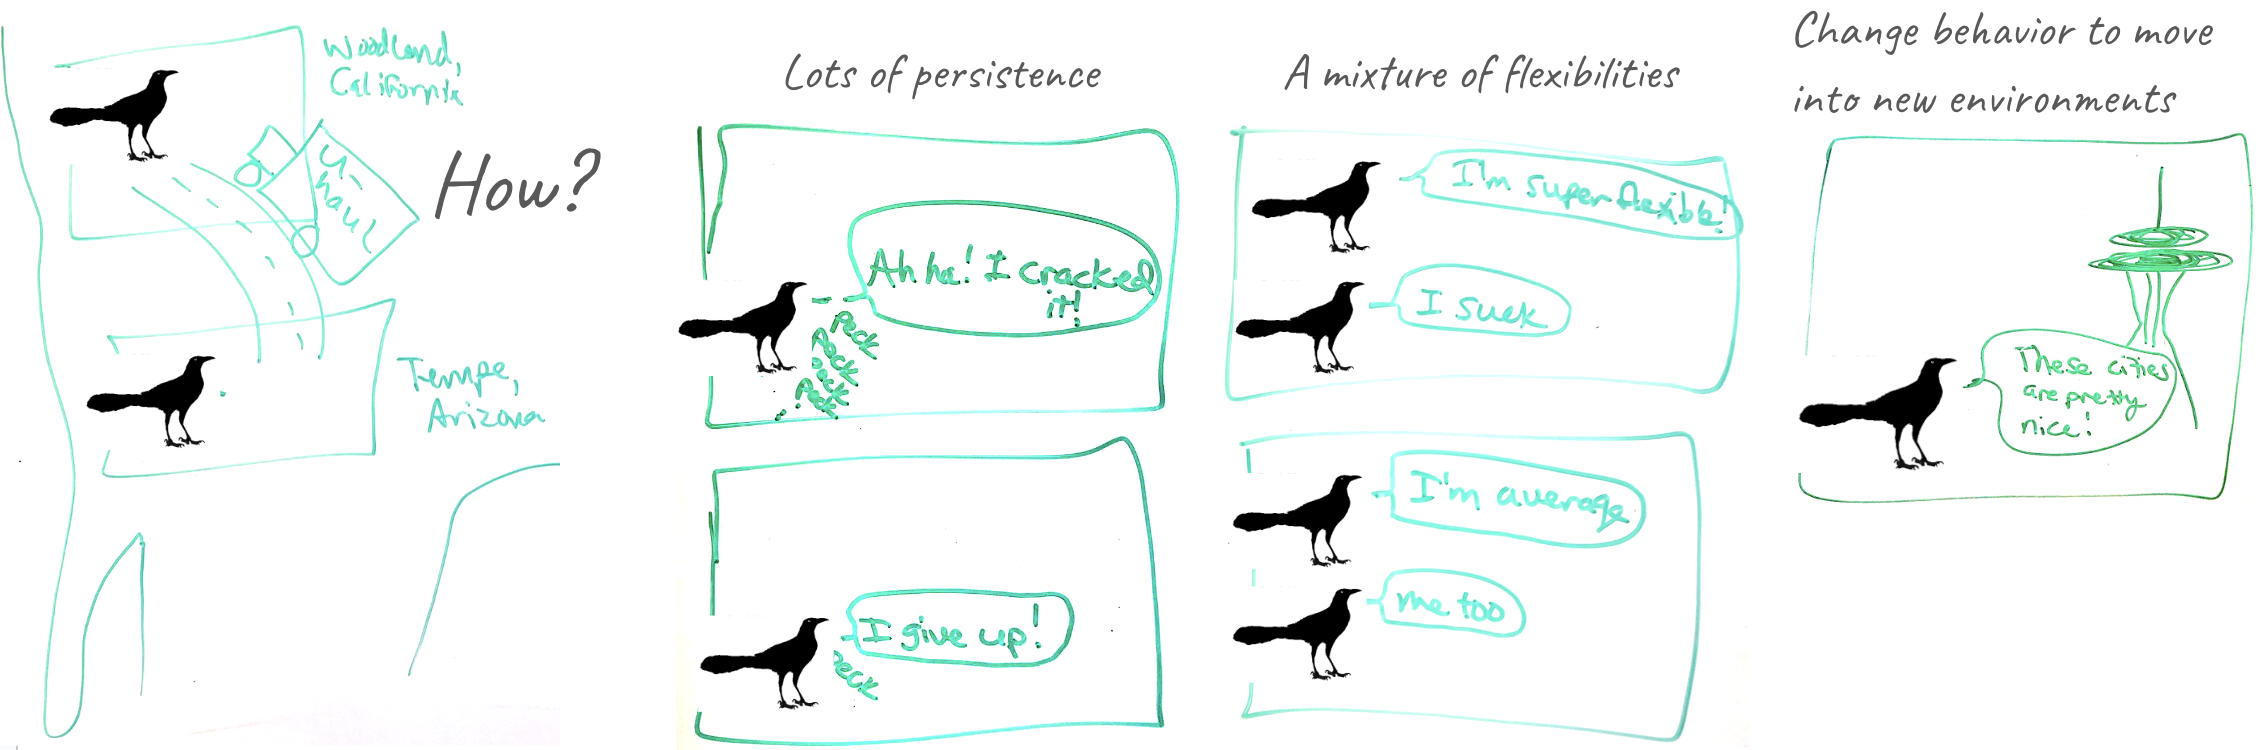 Woodland,
California
U-
haul
How?
Tempe,
Arizona
Lots of persistence
Ah ha! I cracked
it!
Peck
Peck
Peck
Peck
I give up!
Peck
A mixture of flexibilities
I'm super flexible!
I suck
I'm average
me too
Change behavior to move
into new environments
These cities
are pretty
nice!